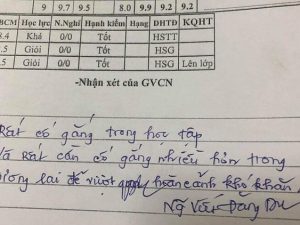 9 9.7 9.5 8.0 9.9 9.2 9.2
BCM Học lực N.Nghỉ Hạnh kiểm Hạng DHTĐ KQHT
8.4 Khá 0/0 Tốt HSTT
.5 Giỏi 0/0 Tốt HSG
.5 Giỏi 0/0 Tốt HSG Lên lớp
-Nhận xét của GVCN
Rất cố gắng trong học tập
Và Rất cần cố gắng nhiều hơn trong
tương lai để vượt qua hoàn cảnh khó khăn